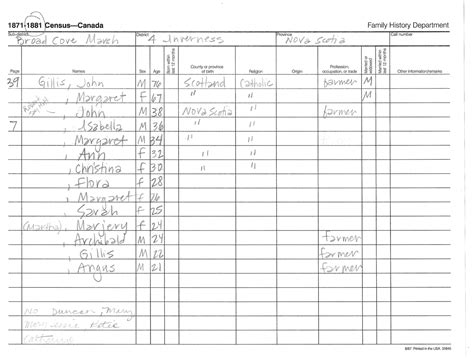 1871-1881 Census—Canada Family History Department
Sub-district District Province Call number
Broad Cove Marsh 4 Inverness Nova Scotia
Page Names Sex Age Born within last 12 months County or province of birth Religion Origin Profession, occupation, or trade Married or widowed Married within last 12 months Other information/remarks
39 Gillis, John M 76 Scotland Catholic farmer M
, Margaret F 67 " " M
, John M 38 Nova Scotia " farmer
7 , Isabella M 36 " "
, Margaret M 34 " "
, Ann f 32 " "
, Christina f 30 " "
, Flora f 28
, Margaret f 26
, Sarah f 25
(Martha), Marjery f 24
, Archibald M 24 farmer
, Gillis M 22 farmer
, Angus M 21 farmer
No Duncan, Mary
Katie
Catherine